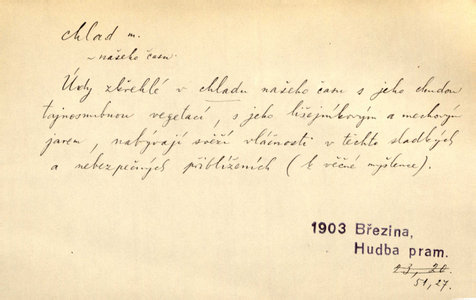 chlad m.
~ našeho času
Údy zkřehlé v chladu našeho času s jeho chudou
tajnosnubnou vegetací, s jeho lišejníkovým a mechovým
jarem, nabývají svěží vláčnosti v těchto sladkých
a nebezpečných přiblíženích (k věčné myšlence).
1903 Březina,
Hudba pram.
23, 26
51, 27.